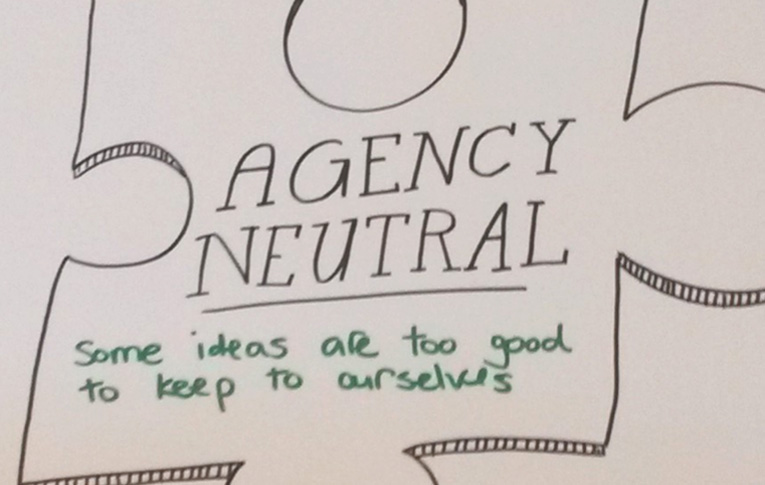 AGENCY
NEUTRAL
Some ideas are too good
to keep to ourselves